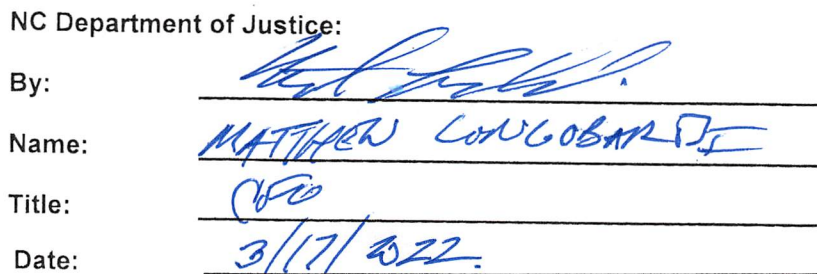 NC Department of Justice:
By:
Name: MATTHEW LONGOBARDI
Title: CFO
Date: 3/17/2022.